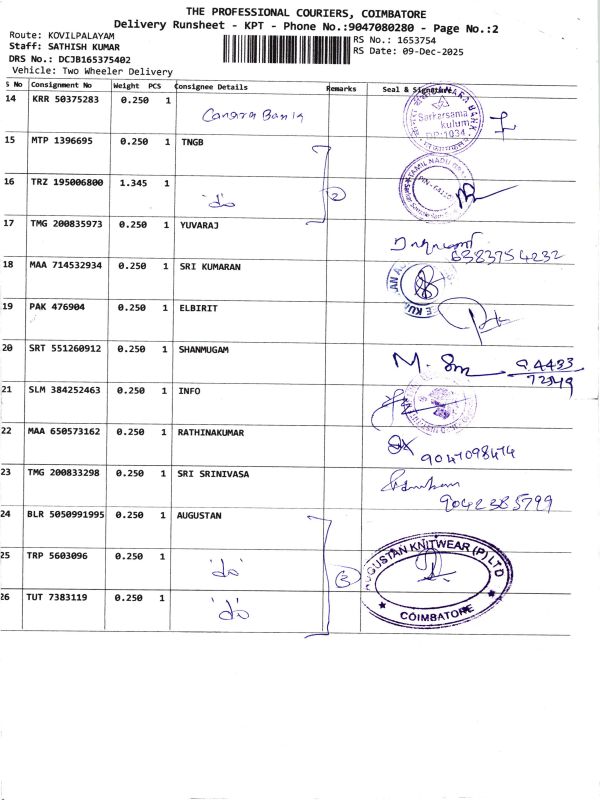 THE PROFESSIONAL COURIERS, COIMBATORE
Delivery Runsheet - KPT - Phone No.:9047080280 - Page No.:2
Route: KOVILPALAYAM
RS No.: 1653754
Staff: SATHISH KUMAR
RS Date: 09-Dec-2025
DRS No.: DCJB165375402
Vehicle: Two Wheeler Delivery
S No Consignment No Weight PCS Consignee Details Remarks Seal & Signature
14 KRR 50375283 0.250 1 Canara Bank
Sarkarsama
kulum
DP:1034
15 MTP 1396695 0.250 1 TNGB
TAMIL NADU
16 TRZ 195006800 1.345 1 "do" 2
17 TMG 200835973 0.250 1 YUVARAJ
6383754232
18 MAA 714532934 0.250 1 SRI KUMARAN
19 PAK 476904 0.250 1 ELBIRIT
20 SRT 551260912 0.250 1 SHANMUGAM
M. Sm
94433
72549
21 SLM 384252463 0.250 1 INFO
22 MAA 650573162 0.250 1 RATHINAKUMAR
9047098474
23 TMG 200833298 0.250 1 SRI SRINIVASA
9042385799
24 BLR 5050991995 0.250 1 AUGUSTAN
25 TRP 5603096 0.250 1 "do" 3
AUGUSTAN KNITWEAR (P) LTD
COIMBATORE
26 TUT 7383119 0.250 1 "do"